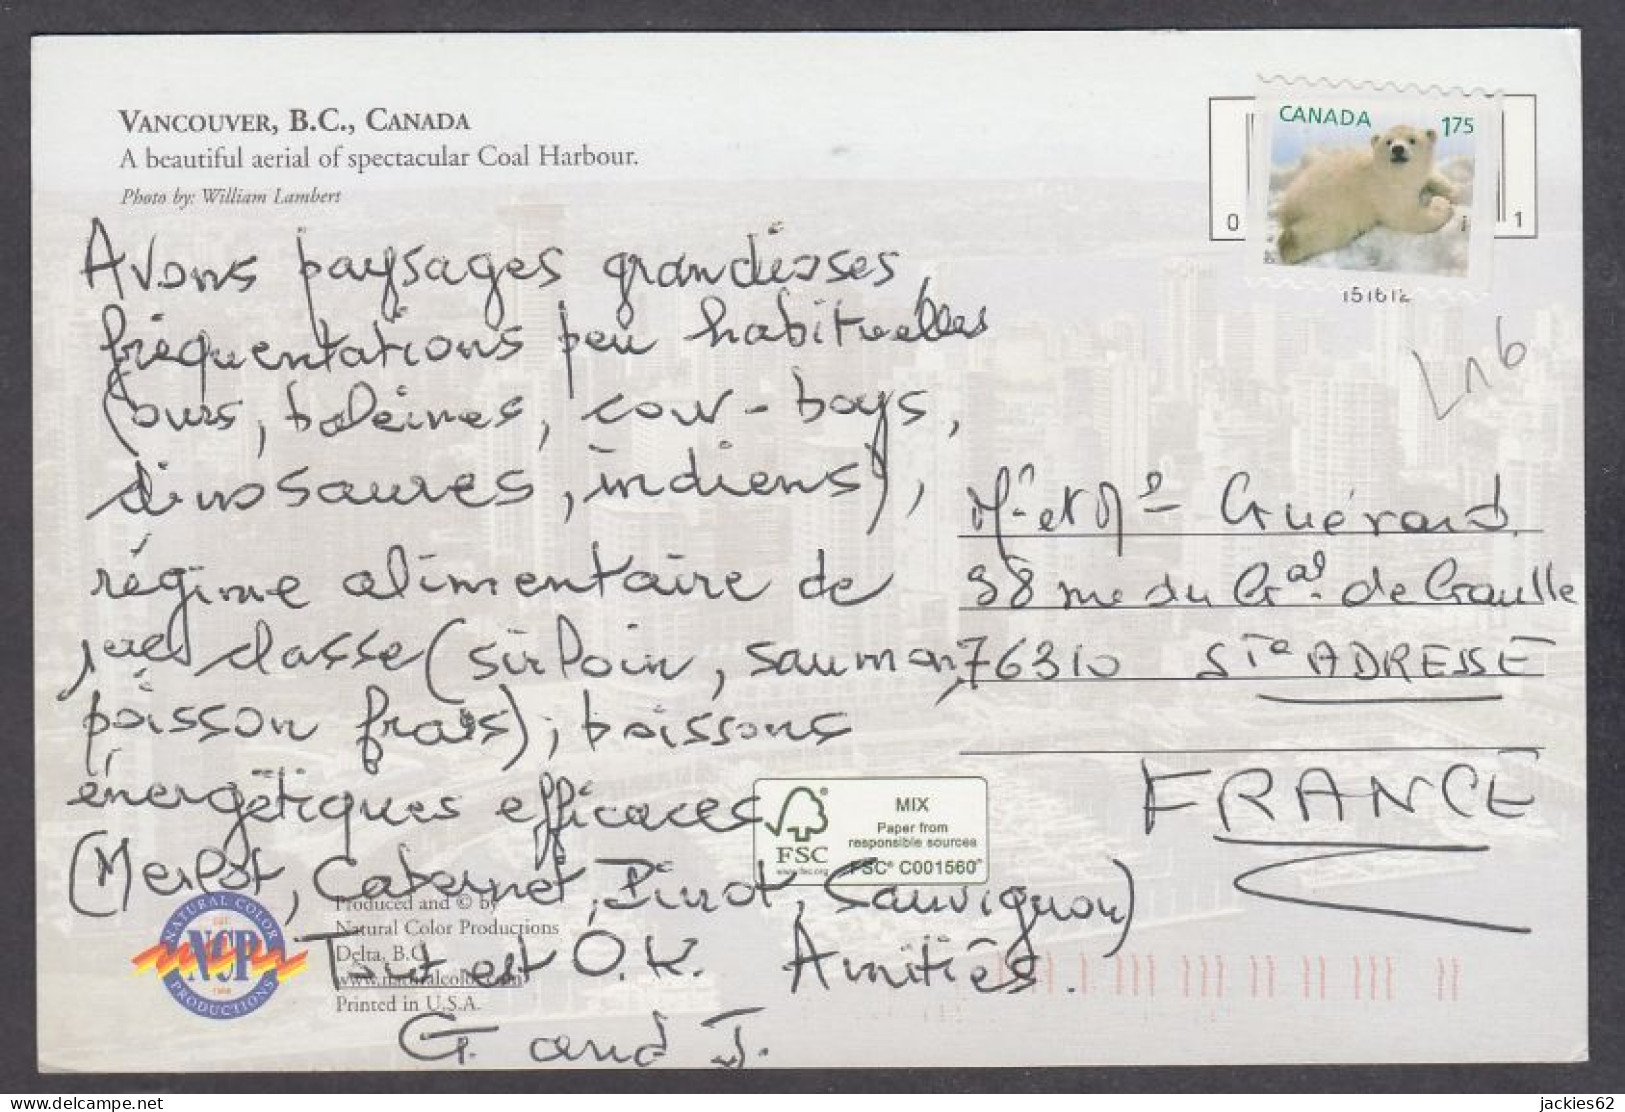 VANCOUVER, B.C., CANADA
A beautiful aerial of spectacular Coal Harbour.
Photo by: William Lambert
CANADA 1.75
0 1
151612
Avons paysages grandioses,
fréquentations peu habituelles
(ours, baleines, cow-boys,
dinosaures, indiens),
régime alimentaire de
1ère classe (sirloin, saumon,
poisson frais), boissons
énergétiques efficaces
(Merlot, Cabernet, Pinot, Sauvignon)
Tout est O.K. Amitiés.
G. and J.
Mr et Mme Guérard
38 rue du Gal de Gaulle
76310 STe ADRESSE
FRANCE
FSC
www.fsc.org
MIX
Paper from
responsible sources
FSC® C001560
NATURAL COLOR
EST.
NCP
1988
PRODUCTIONS
Produced and © by
Natural Color Productions
Delta, B.C.
www.naturalcolor.com
Printed in U.S.A.
www.delcampe.net
jackies62